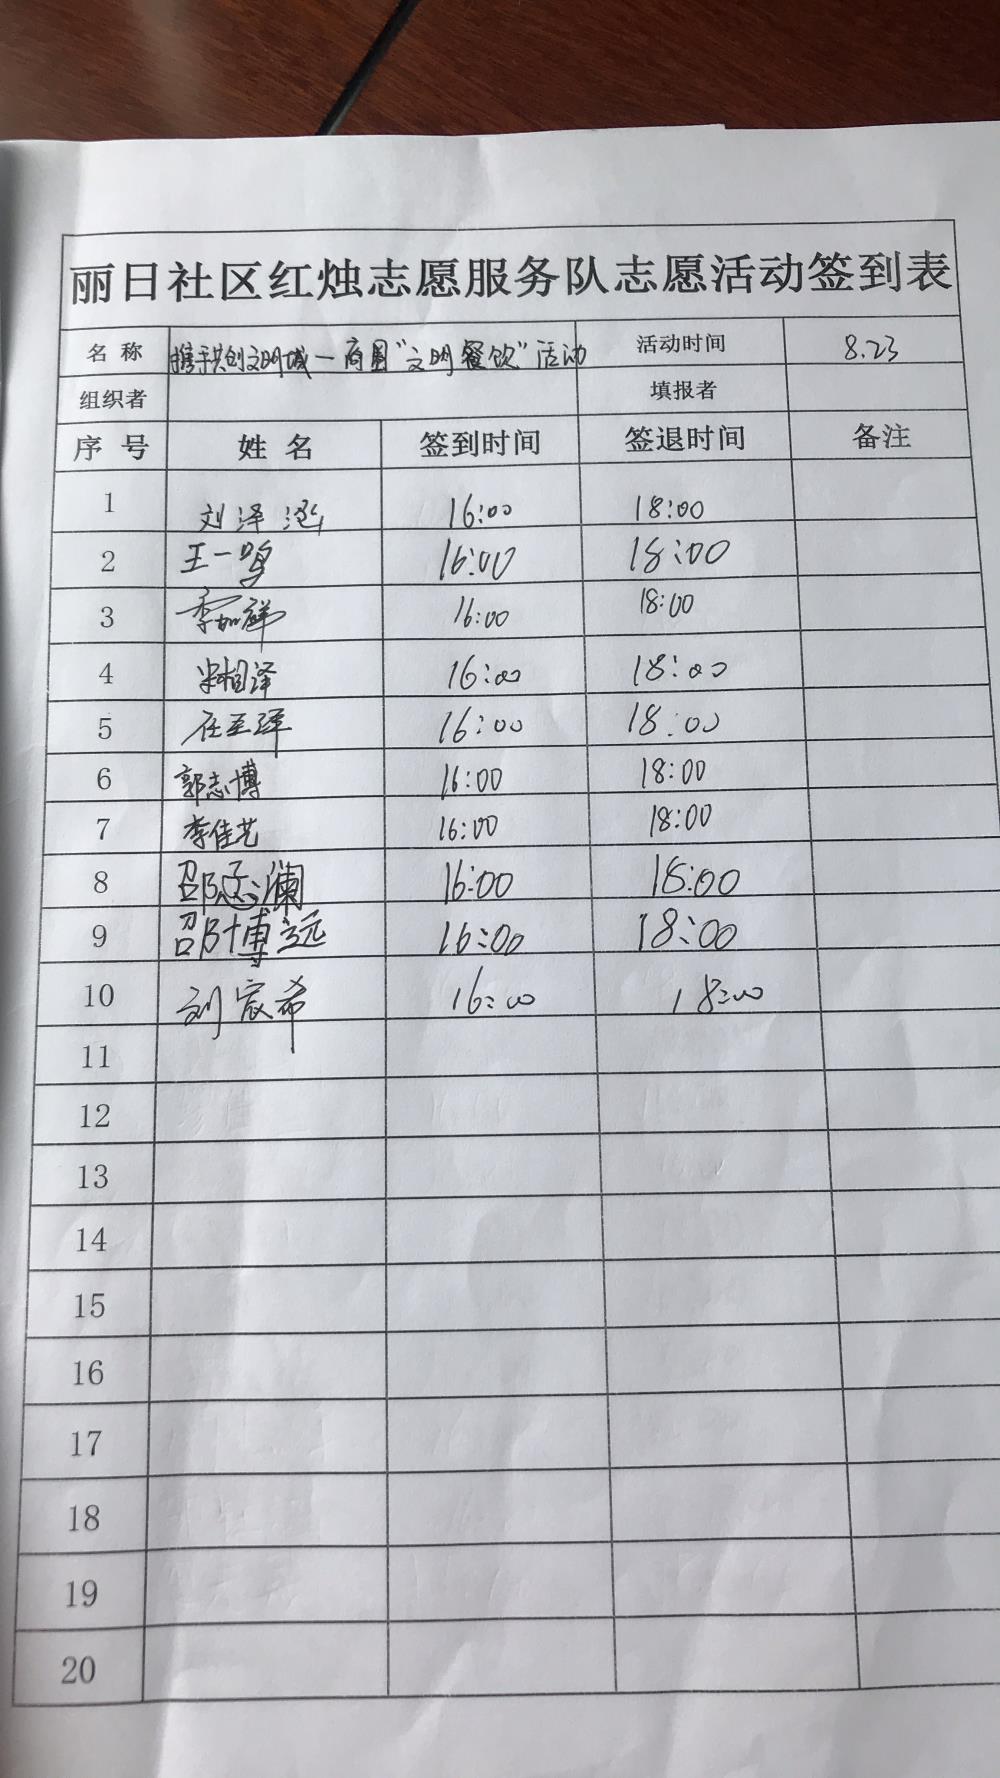 丽日社区红烛志愿服务队志愿活动签到表
名称 携手共创文明城一商圈“文明餐饮”活动 活动时间 8.23
组织者 填报者
序号 姓名 签到时间 签退时间 备注
1 刘泽 16:00 18:00
2 王一鸣 16:00 18:00
3 李如祥 16:00 18:00
4 宋相泽 16:00 18:00
5 任至泽 16:00 18:00
6 郭志博 16:00 18:00
7 李佳艺 16:00 18:00
8 邵 澜 16:00 18:00
9 邵博远 16:00 18:00
10 刘宸希 16:00 18:00
11
12
13
14
15
16
17
18
19
20